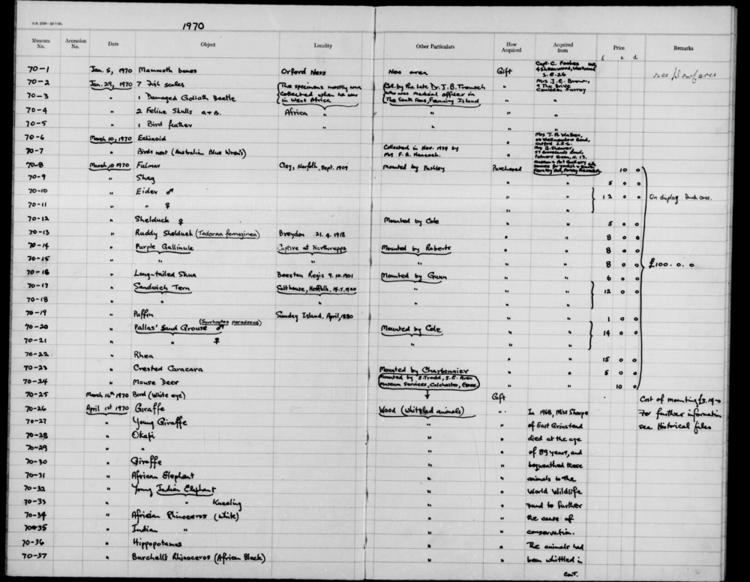 1970
Museum No. Accession No. Date Object Locality Other Particulars How Acquired Acquired from Price £ s d Remarks
70-1 Jan. 5, 1970 Mammoth bones Orford Ness Ness area Gift Capt. C. Forbes
70-2 Jan. 29, 1970 7 Fish scales The specimens mostly were Col. by the late Dr. J. B. " Mrs J. E. Brown,
70-3 " 1 Damaged Goliath Beetle collected when he was in West Africa who was medical officer in " The Drive
70-4 " 2 Feline Skulls a + b. Africa The South Seas, Fanning Island "
70-5 " 1 Bird feather " " "
70-6 March 10, 1970 Echinoid " Mrs J. B. Walker,
70-7 " Birds nest (Australian Blue Wren's) Collected in Nov. 1938 by Mrs F. B. Hancock. "
70-8 March 10 1970 Fulmar Cley, Norfolk, Sept. 1909 Mounted by Pashley Purchased 10 0
70-9 " Shag " 5 0 0
70-10 " Eider ♂ " 12 0 0 On display Duck case.
70-11 " " ♀ "
70-12 " Shelduck ♀ Mounted by Cole " 5 0 0
70-13 " Ruddy Shelduck (Tadorna ferruginea) Breydon 21. 4. 1918 " 8 0 0
70-14 " Purple Gallinule Captive at Northrepps Mounted by Roberts " 8 0 0
70-15 " " " " " 8 0 0 £100. 0. 0
70-16 " Long-tailed Skua Beeston Regis 9. 10. 1901 Mounted by Gunn " 6 0 0
70-17 " Sandwich Tern Salthouse, Norfolk, 15. 5. 1900 " 12 0 0
70-18 " " "
70-19 " Puffin Sunday Island, April, 1880 " 1 0 0
70-20 " Pallas' Sand Grouse ♂ (Syrrhaptes paradoxus) Mounted by Cole " 14 0 0
70-21 " " ♀ " "
70-22 " Rhea " 15 0 0
70-23 " Crested Caracara Mounted by Charbonnier " 5 0 0
70-24 " Mouse Deer Mounted by " 10 0
70-25 March 16th 1970 Bird (White eye) Museum Services, Colchester, Essex Gift Cost of mounting
70-26 April 1st 1970 Giraffe Wood (Whittled animals) " In 1968, Miss Sharpe For further information
70-27 " Young Giraffe " of East Grinstead see Historical files
70-28 " Okapi " died at the age
70-29 " " " of 89 years, and
70-30 " Giraffe " bequeathed these
70-31 " African Elephant " animals to the
70-32 " Young Indian Elephant " World Wildlife
70-33 " " Kneeling " Fund to further
70-34 " African Rhinoceros (White) " the cause of
70-35 " Indian " " conservation.
70-36 " Hippopotamus " The animals had
70-37 " Burchell's Rhinoceros (African Black) " been whittled in
cont.